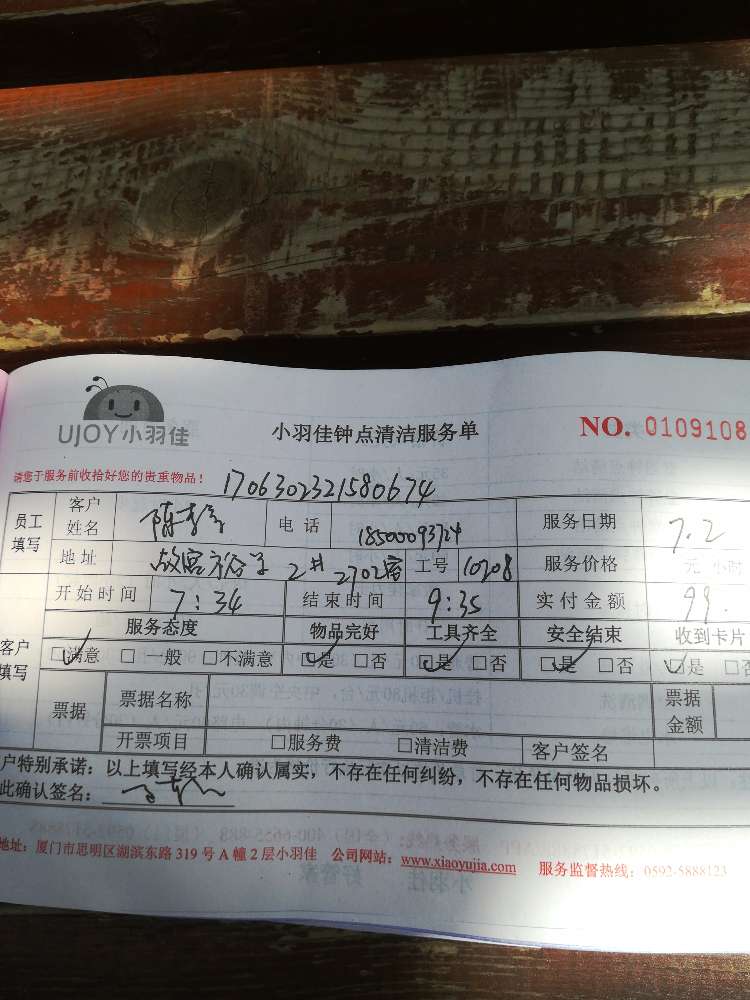 UJOY小羽佳
小羽佳钟点清洁服务单
NO. 0109108
请您于服务前收拾好您的贵重物品!
1706302321580674
员工填写 客户姓名 陈 电话 18500093724 服务日期 7.2
地址 故宫裕 2# 2702室 工号 10208 服务价格 元 小时
开始时间 7:34 结束时间 9:35 实付金额 99.
客户填写 服务态度 物品完好 工具齐全 安全结束 收到卡片
□满意 □一般 □不满意 □是 □否 □是 □否 □是 □否 □是 □否
票据 票据名称 票据金额
开票项目 □服务费 □清洁费 客户签名
户特别承诺:以上填写经本人确认属实,不存在任何纠纷,不存在任何物品损坏。
此确认签名:
地址:厦门市思明区湖滨东路319号A幢2层小羽佳 公司网站:www.xiaoyujia.com 服务监督热线:0592-5888123